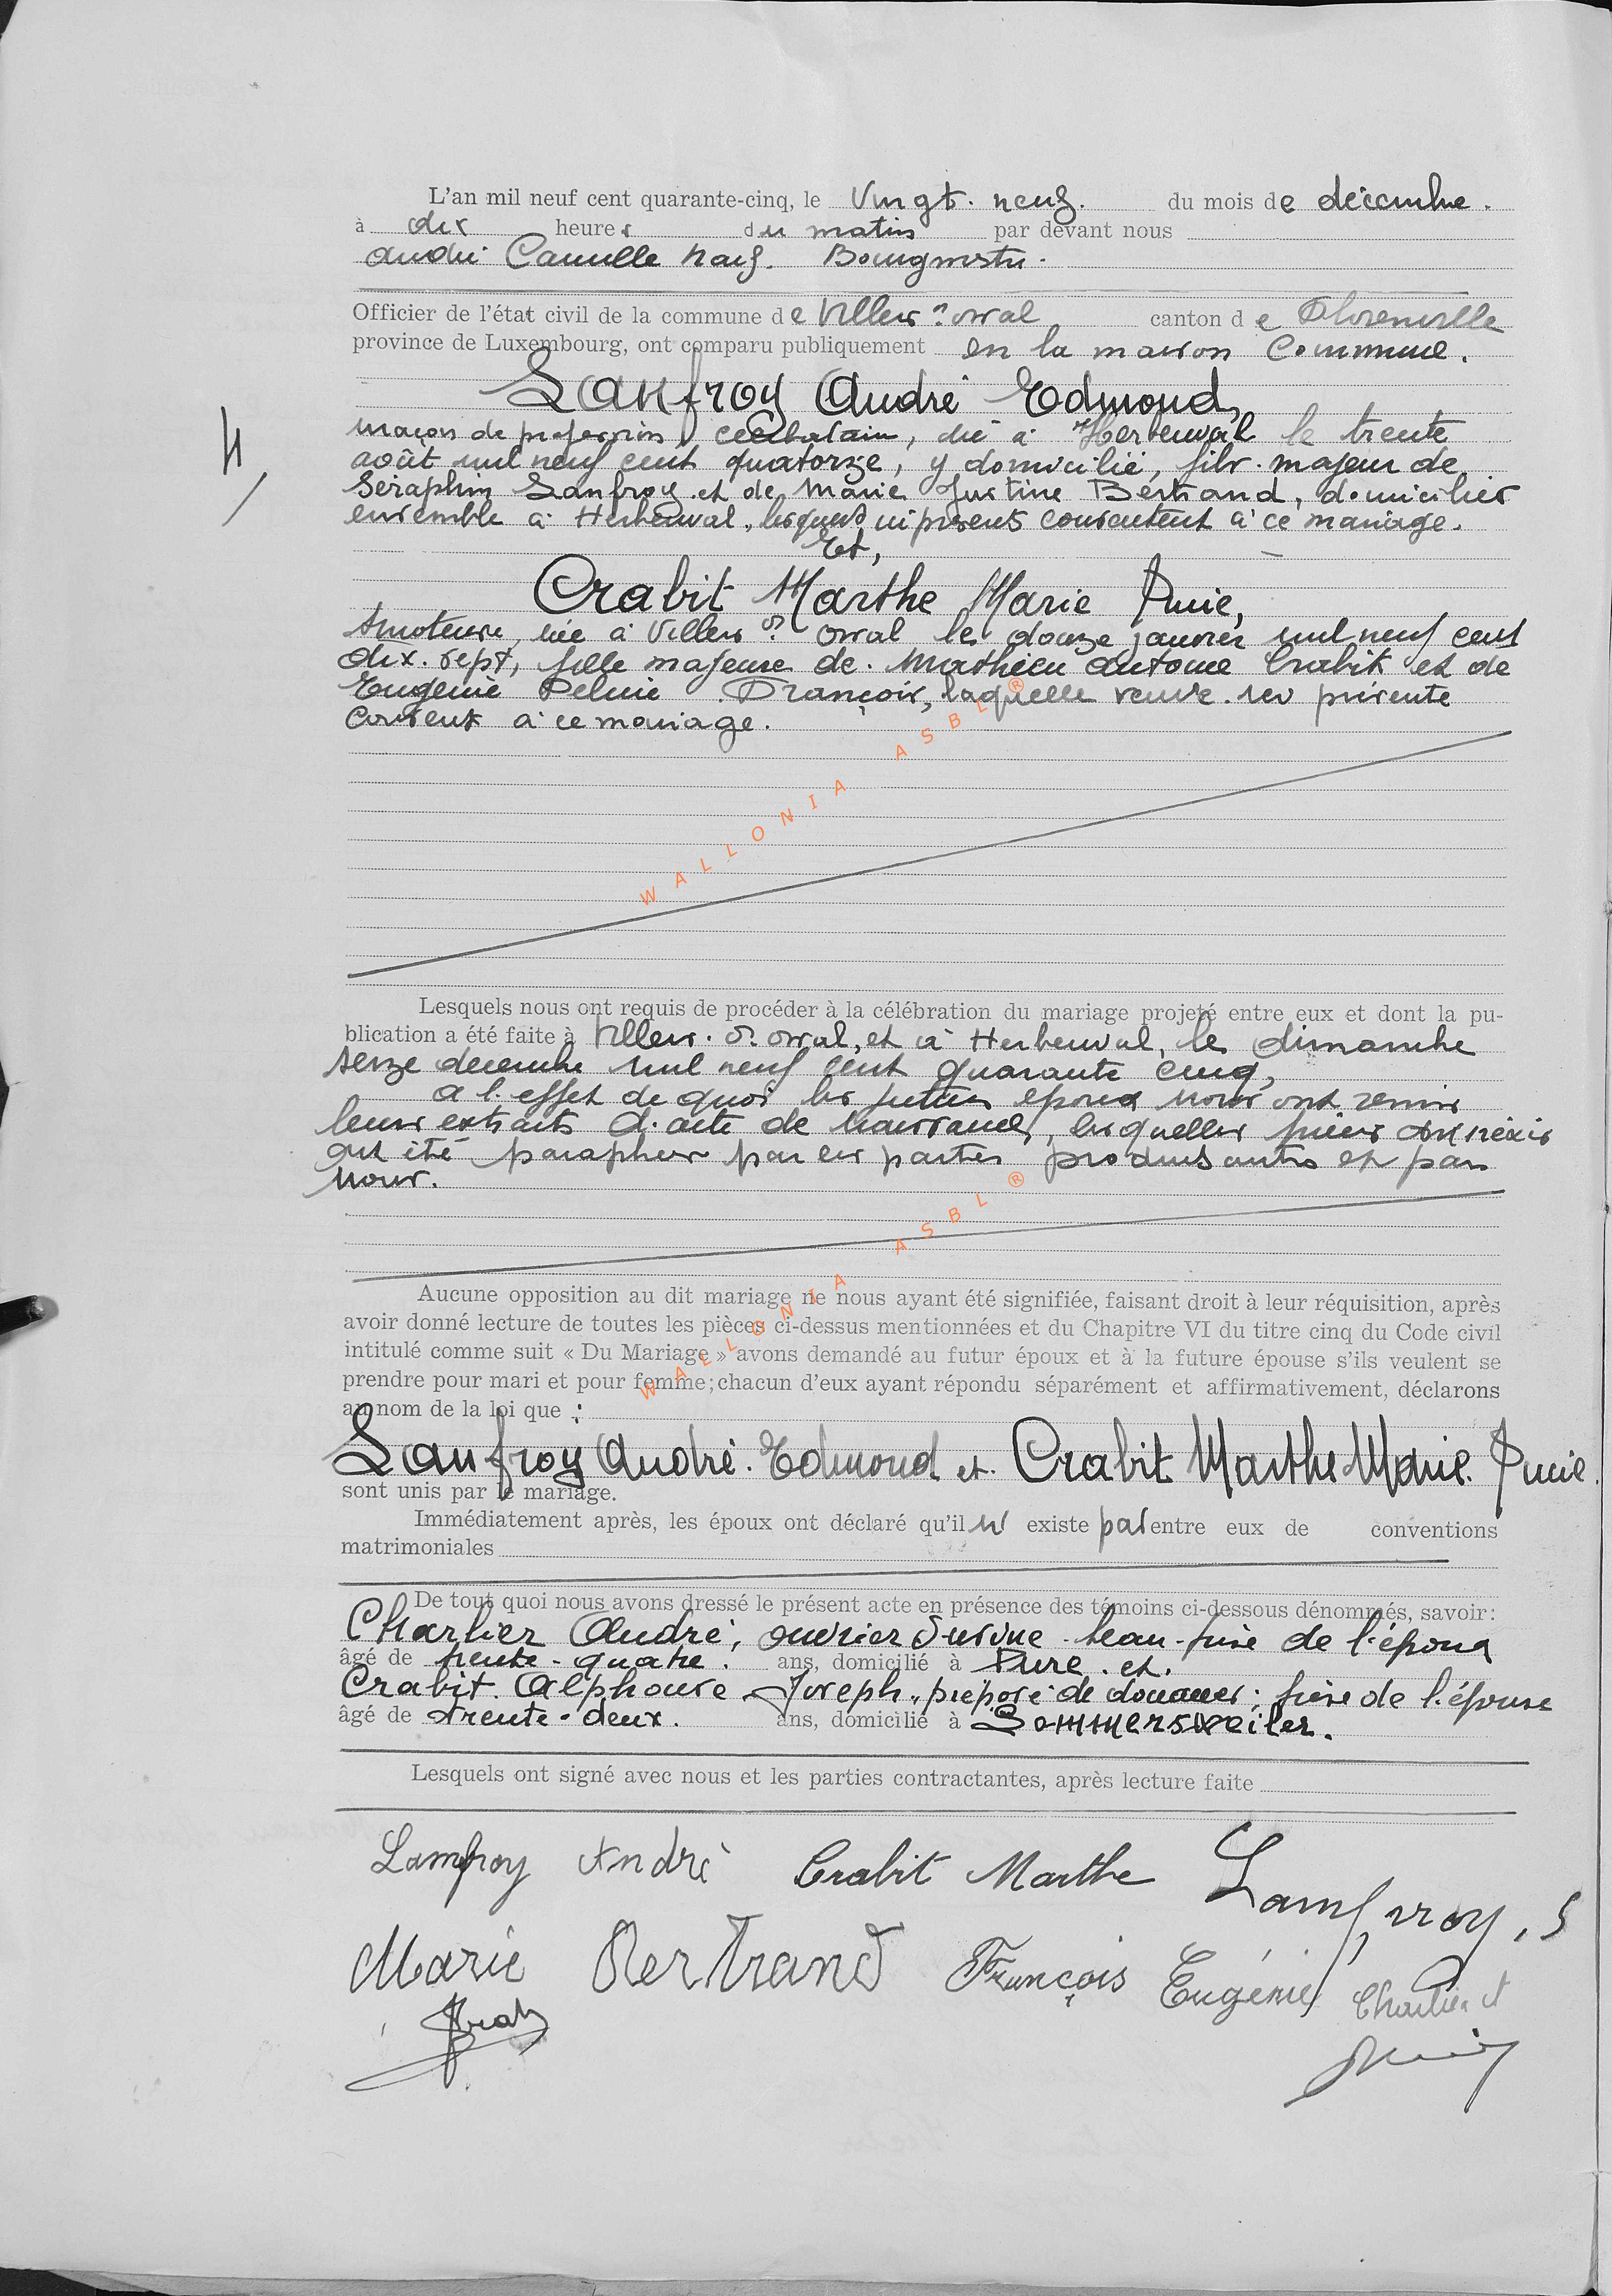 L'an mil neuf cent quarante-cinq, le vingt. neuf. du mois de décembre.
à dix heures du matin par devant nous
André Camille Naif. Bourgmestre.
Officier de l'état civil de la commune de Villers dt orval canton de Florenville
province de Luxembourg, ont comparu publiquement en la maison Commune.
Lanfroy André Edmond,
4/
maçon de profession, célibataire, né à Herbeuval le trente
août mil neuf cent quatorze, y domicilié, fils majeur de
Séraphin Lanfroy et de Marie Justine Bertrand, domiciliés
ensemble à Herbeuval, lesquels ici présents consentent à ce mariage.
Et,
Crabit Marthe Marie
née à Villers dt orval le douze janvier mil neuf cent
dix. sept, fille majeure de. Mathieu Antoine Crabit et de
Eugénie François, laquelle veuve. ici présente
consent à ce mariage.
Lesquels nous ont requis de procéder à la célébration du mariage projeté entre eux et dont la pu-
blication a été faite à Villers. dt orval, et à Herbeuval, le dimanche
seize décembre mil neuf cent quarante cinq,
à l'effet de quoi les futurs époux nous ont remis
leurs extraits d'acte de naissance, lesquelles pièces
ont été paraphées par les parties produisantes et par
nous.
Aucune opposition au dit mariage ne nous ayant été signifiée, faisant droit à leur réquisition, après
avoir donné lecture de toutes les pièces ci-dessus mentionnées et du Chapitre VI du titre cinq du Code civil
intitulé comme suit « Du Mariage » avons demandé au futur époux et à la future épouse s'ils veulent se
prendre pour mari et pour femme; chacun d'eux ayant répondu séparément et affirmativement, déclarons
au nom de la loi que :
Lanfroy André. Edmond et. Crabit Marthe Marie.
sont unis par le mariage.
Immédiatement après, les époux ont déclaré qu'il n' existe pas entre eux de conventions
matrimoniales
De tout quoi nous avons dressé le présent acte en présence des témoins ci-dessous dénommés, savoir:
Charlier André, ouvrier d'usine beau-frère de l'époux
âgé de trente-quatre. ans, domicilié à Pure. et.
Crabit. Alphonse Joseph, préposé de douanes; frère de l'épouse
âgé de trente-deux. ans, domicilié à Sommersweiler.
Lesquels ont signé avec nous et les parties contractantes, après lecture faite
Lanfroy André Crabit Marthe Lanfroy, S
Marie Bertrand François Eugénie Charlier A
WALLONIA ASBL ®
WALLONIA ASBL ®